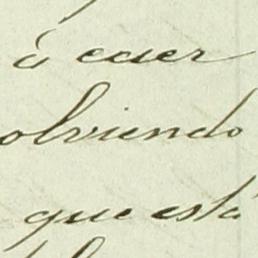 á caer
olviendo
que está